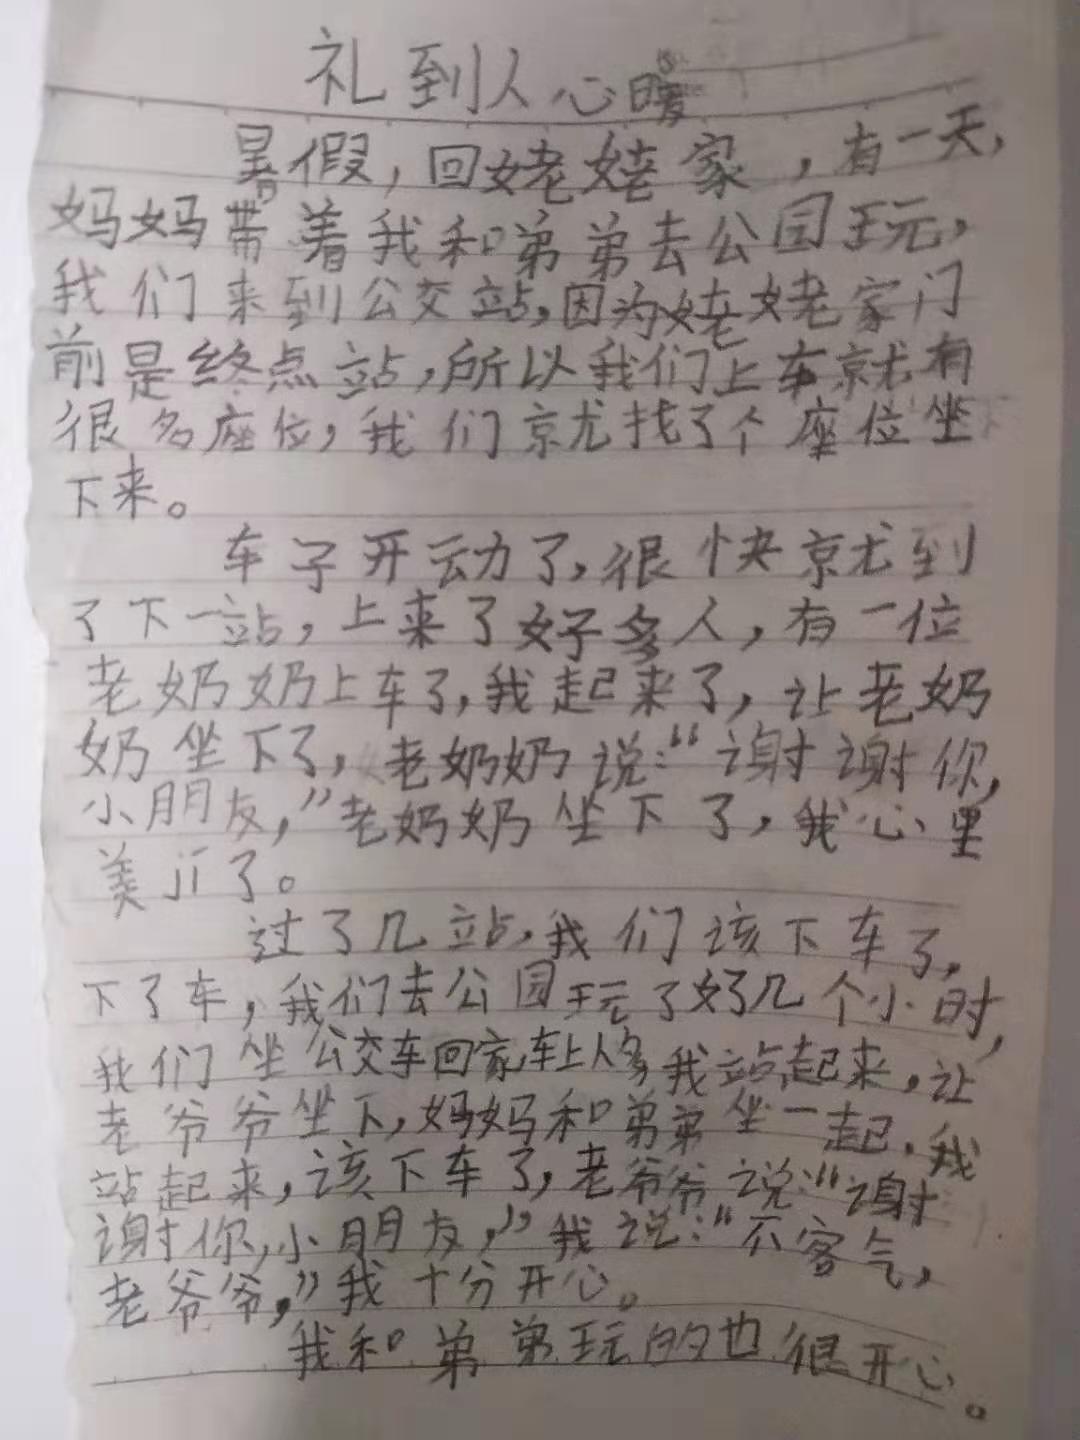 礼到人心暖
暑假，回姥姥家，有一天，
妈妈带着我和弟弟去公园玩，
我们来到公交站，因为姥姥家门
前是终点站，所以我们上车就有
很多座位，我们就找了个座位坐
下来。
车子开动了，很快就到
了下一站，上来了好多人，有一位
老奶奶上车了，我起来了，让老奶
奶坐下了，老奶奶说：“谢谢你，
小朋友，”老奶奶坐下了，我心里
美jí了。
过了几站，我们该下车了，
下了车，我们去公园玩了好几个小时，
我们坐公交车回家，车上人多，我站起来，让
老爷爷坐下，妈妈和弟弟坐一起，我
站起来，该下车了，老爷爷说：“谢
谢你，小朋友，”我说：“不客气，
老爷爷，”我十分开心。
我和弟弟玩的也很开心。